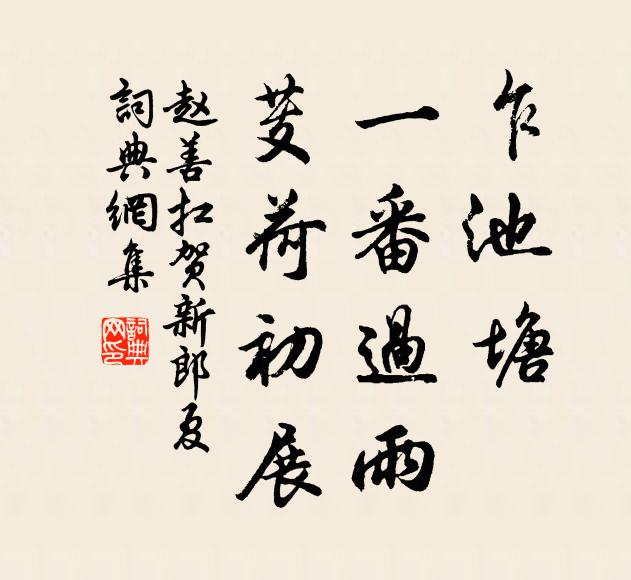 乍池塘
一番過雨
芰荷初展
赵善扛贺新郎夏
詞典網集
詞典
网印